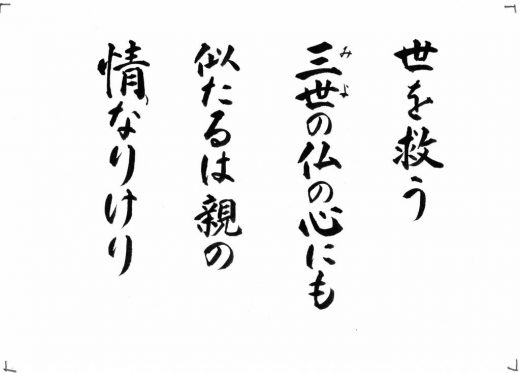 世を救う
三世の仏の心にも
みよ
似たるは親の
情なりけり